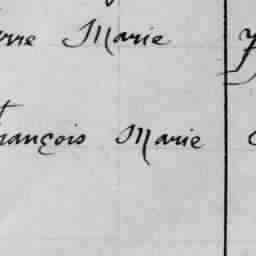 erre Marie
François Marie